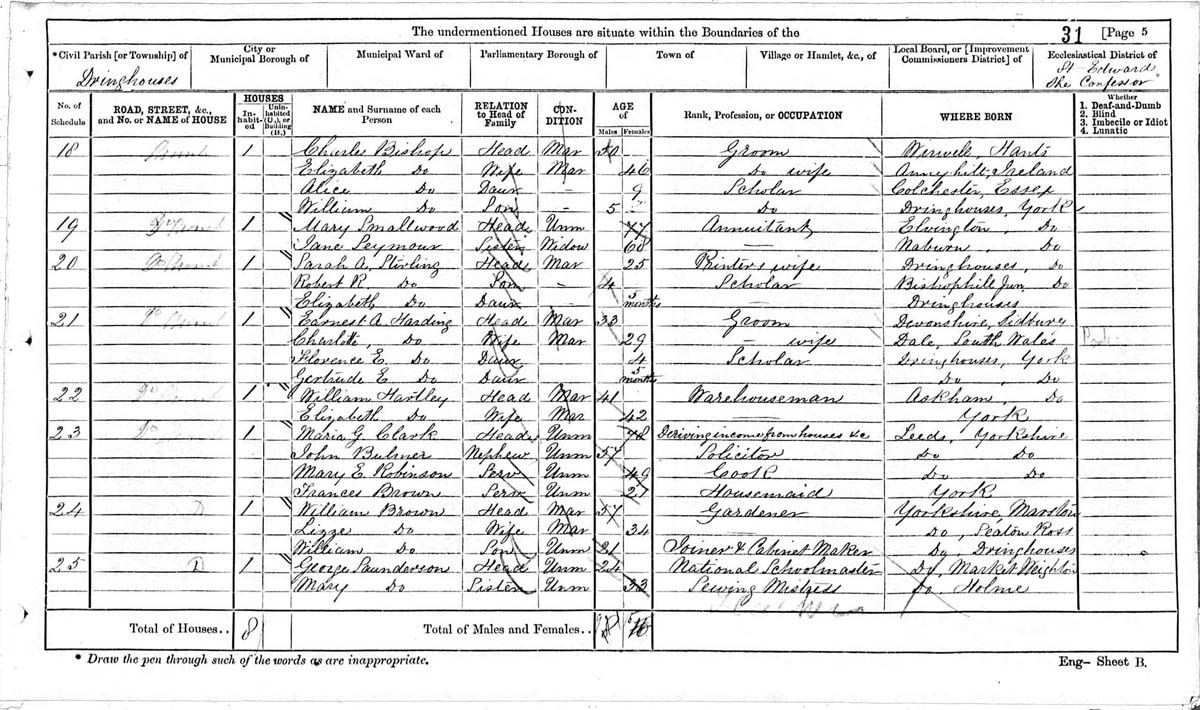 The undermentioned Houses are situate within the Boundaries of the 31 [Page 5
* Civil Parish [or Township] of City or Municipal Borough of Municipal Ward of Parliamentary Borough of Town of Village or Hamlet, &c., of Local Board, or [Improvement Commissioners District] of Ecclesiastical District of
Dringhouses St Edward the Confessor
No. of Schedule ROAD, STREET, &c., and No. or NAME of HOUSE HOUSES Inhabited Uninhabited (U.), or Building (B.) NAME and Surname of each Person RELATION to Head of Family CONDITION AGE of Males Females Rank, Profession, or OCCUPATION WHERE BORN Whether 1. Deaf-and-Dumb 2. Blind 3. Imbecile or Idiot 4. Lunatic
18 1 Charles Bishop Head Mar 50 Groom Hants
Elizabeth Do Wife Mar 46 Do wife Ireland
Alice Do Daur - 9 Scholar Colchester, Essex
William Do Son - 5 Do Dringhouses, York
19 1 Mary Smallwood Head Unm 77 Annuitant Elvington, Do
Jane Seymour Sister Widow 68 — Naburn, Do
20 1 Sarah A. Stirling Head Mar 25 Printers wife Dringhouses, Do
Robert R. Do Son - 4 Scholar Bishophill Jun, Do
Elizabeth Do Daur - 3 months — Dringhouses
21 1 Earnest A. Harding Head Mar 33 Groom Devonshire, Sidbury
Charlotte, Do Wife Mar 29 — wife Dale, South Wales
Florence E. Do Daur 4 Scholar Dringhouses, York
Gertrude E. Do Daur 5 months Do, Do
22 Do 1 William Hartley Head Mar 41 Warehouseman Askham, Do
Elizabeth Do Wife Mar 42 — York
23 Do 1 Maria G. Clark Head Unm 78 Deriving income from houses &c Leeds, Yorkshire
John Bulmer Nephew Unm 57 Solicitor Do Do
Mary E. Robinson Serv Unm 49 Cook Do Do
Frances Brown Serv Unm 27 Housemaid York
24 D 1 William Brown Head Mar 57 Gardener Yorkshire, Marston
Lizze Do Wife Mar 34 Do, Seaton Ross
William Do Son Unm 21 Joiner & Cabinet Maker Do, Dringhouses
25 D 1 George Saunderson Head Unm 24 National Schoolmaster Do, Market Weighton
Mary Do Sister Unm 33 Sewing Mistress Do, Holme
Total of Houses.. 8 Total of Males and Females..
* Draw the pen through such of the words as are inappropriate. Eng- Sheet B.